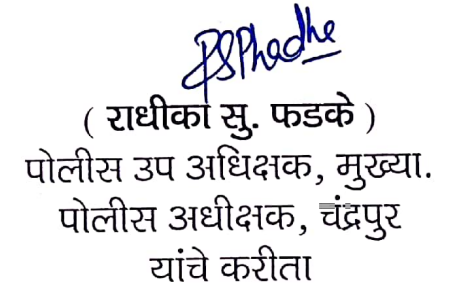 RSPhadke
( राधीका सु. फडके )
पोलीस उप अधिक्षक, मुख्या.
पोलीस अधीक्षक, चंद्रपुर
यांचे करीता